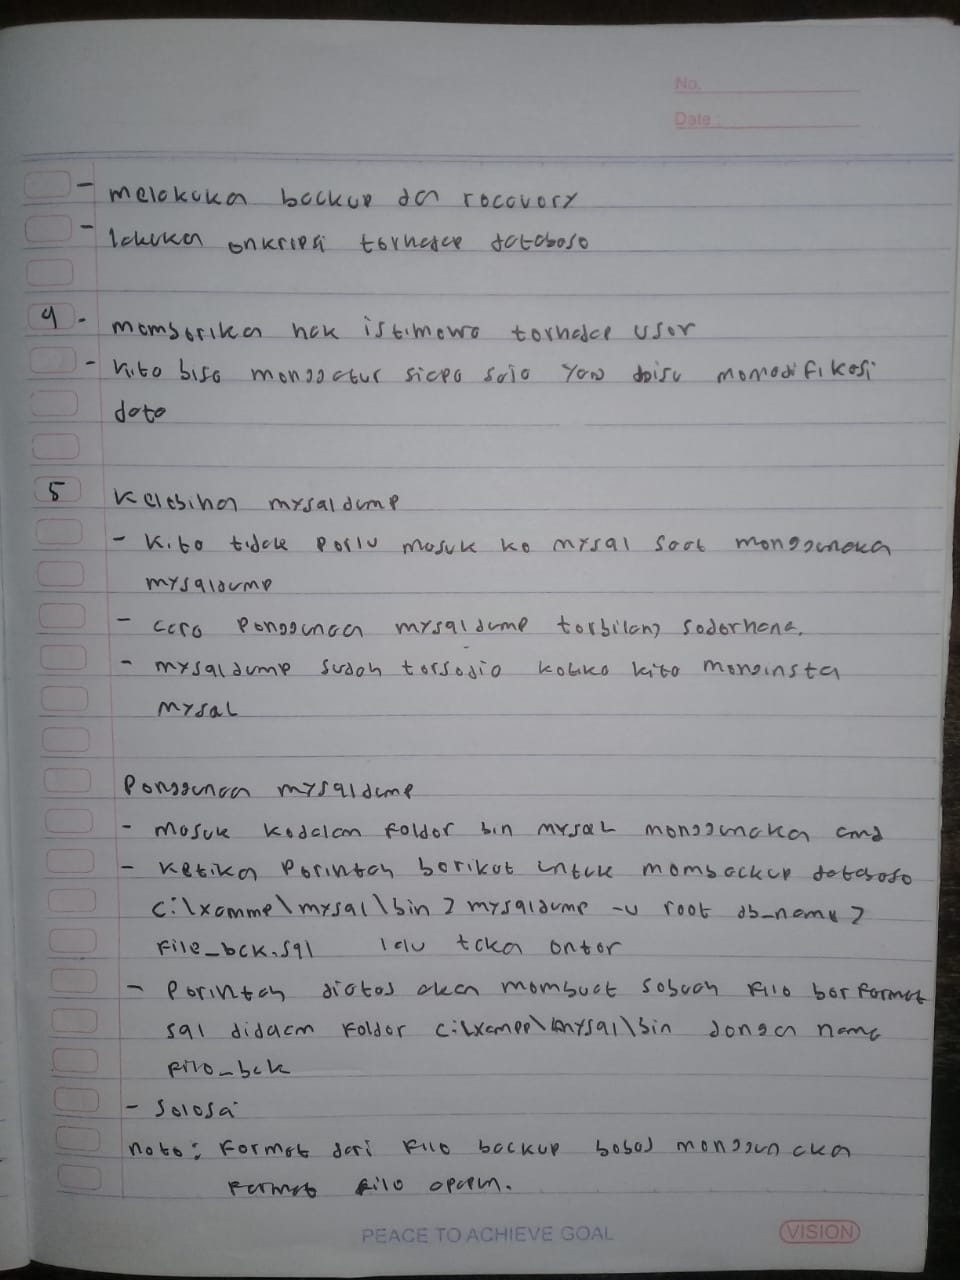 No.
Date :
- melakuka backup da recovery
- lakuka enkripsi terhadap database
4 - memberika hak istimewa terhadap user
- kita bisa menggatur siapa saja yan bisa memodifikasi
data
5 Kelebihan mysqldump
- Kita tidak perlu masuk ke mysql saat menggunaka
mysqldump
- cara penggunaa mysqldump terbilang sederhana.
- mysqldump sudah tersedia ketika kita menginsta
mysql
Penggunaa mysqldump
- masuk kedalam folder bin mysql menggunaka cmd
- ketika perintah berikut untuk membackup database
C:\xampp\mysql\bin > mysqldump -u root db_name >
file_bck.sql lalu teka enter
- Perintah diatas aka membuat sebuah file berformat
sql didaam folder C:\xampp\mysql\bin denga nama
file_bck
- Selesai
note: Format dari file backup bebas menggunaka
format file apapun.
PEACE TO ACHIEVE GOAL
VISION